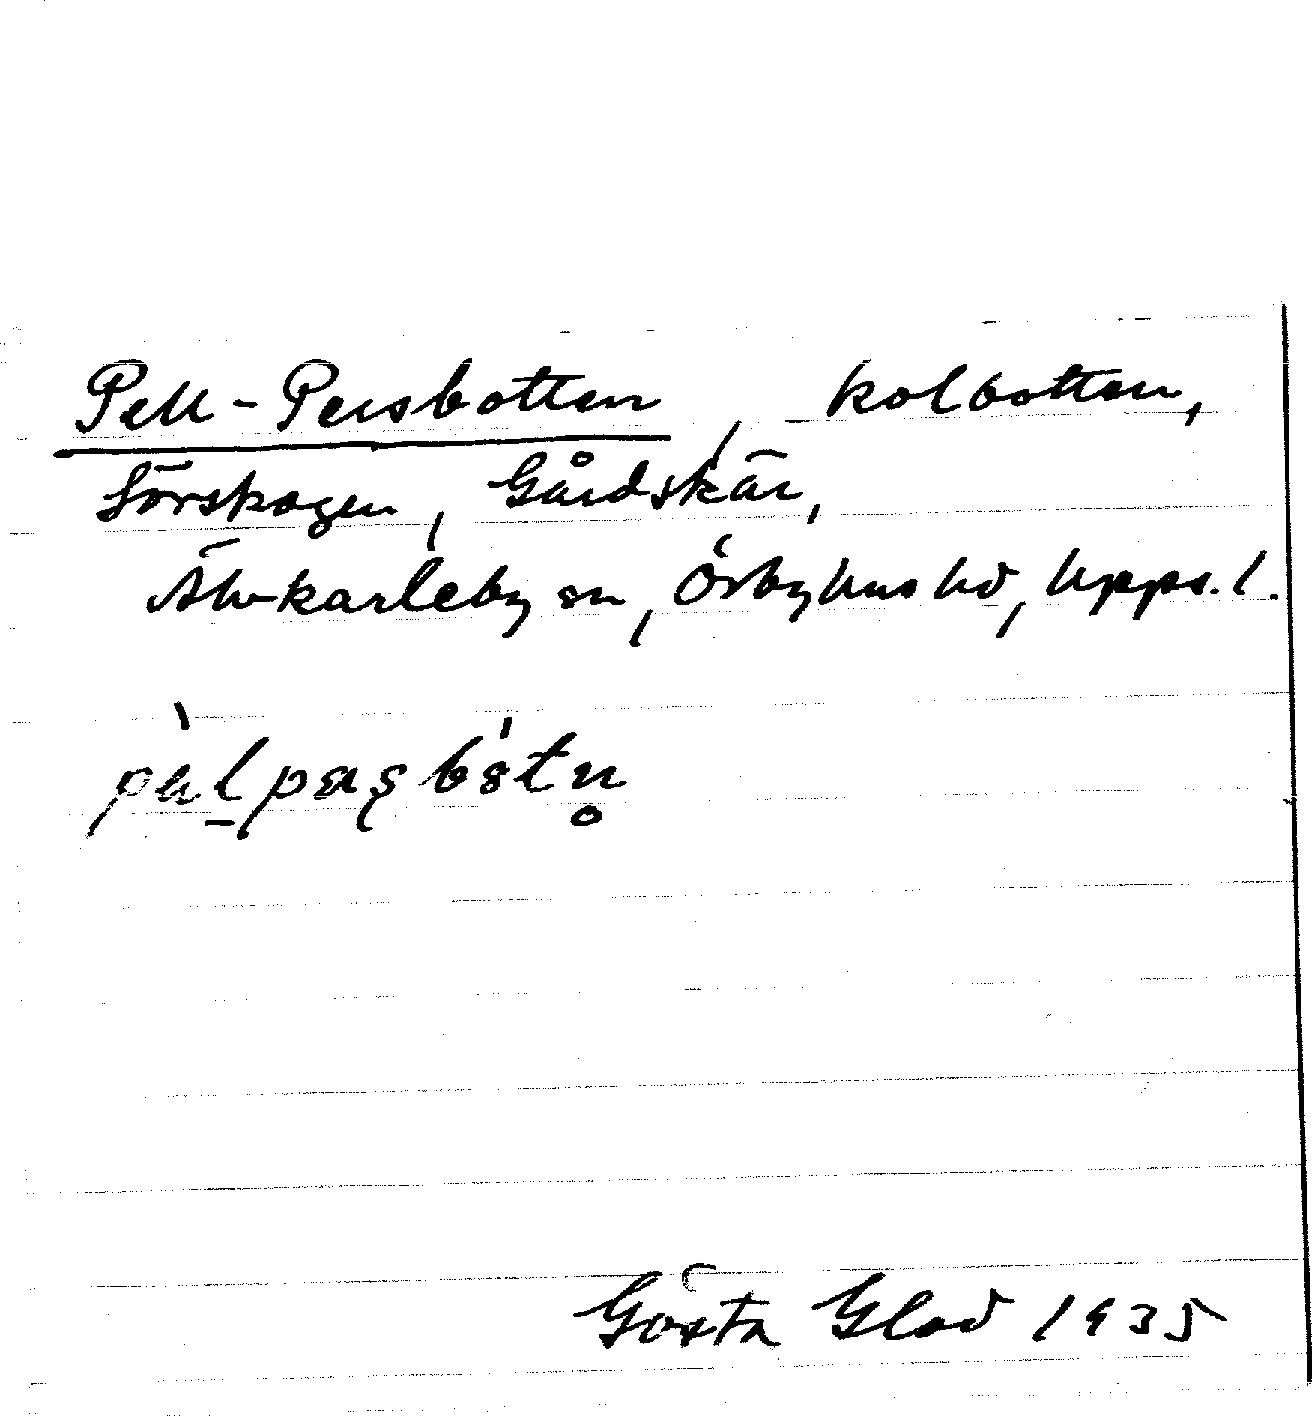 Pell-Persbotten, kolbotten,
Sörskogen, Gårdskär,
Älvkarleby sn, Örbyhus hd, Upps. l.
Gösta Glad 1935